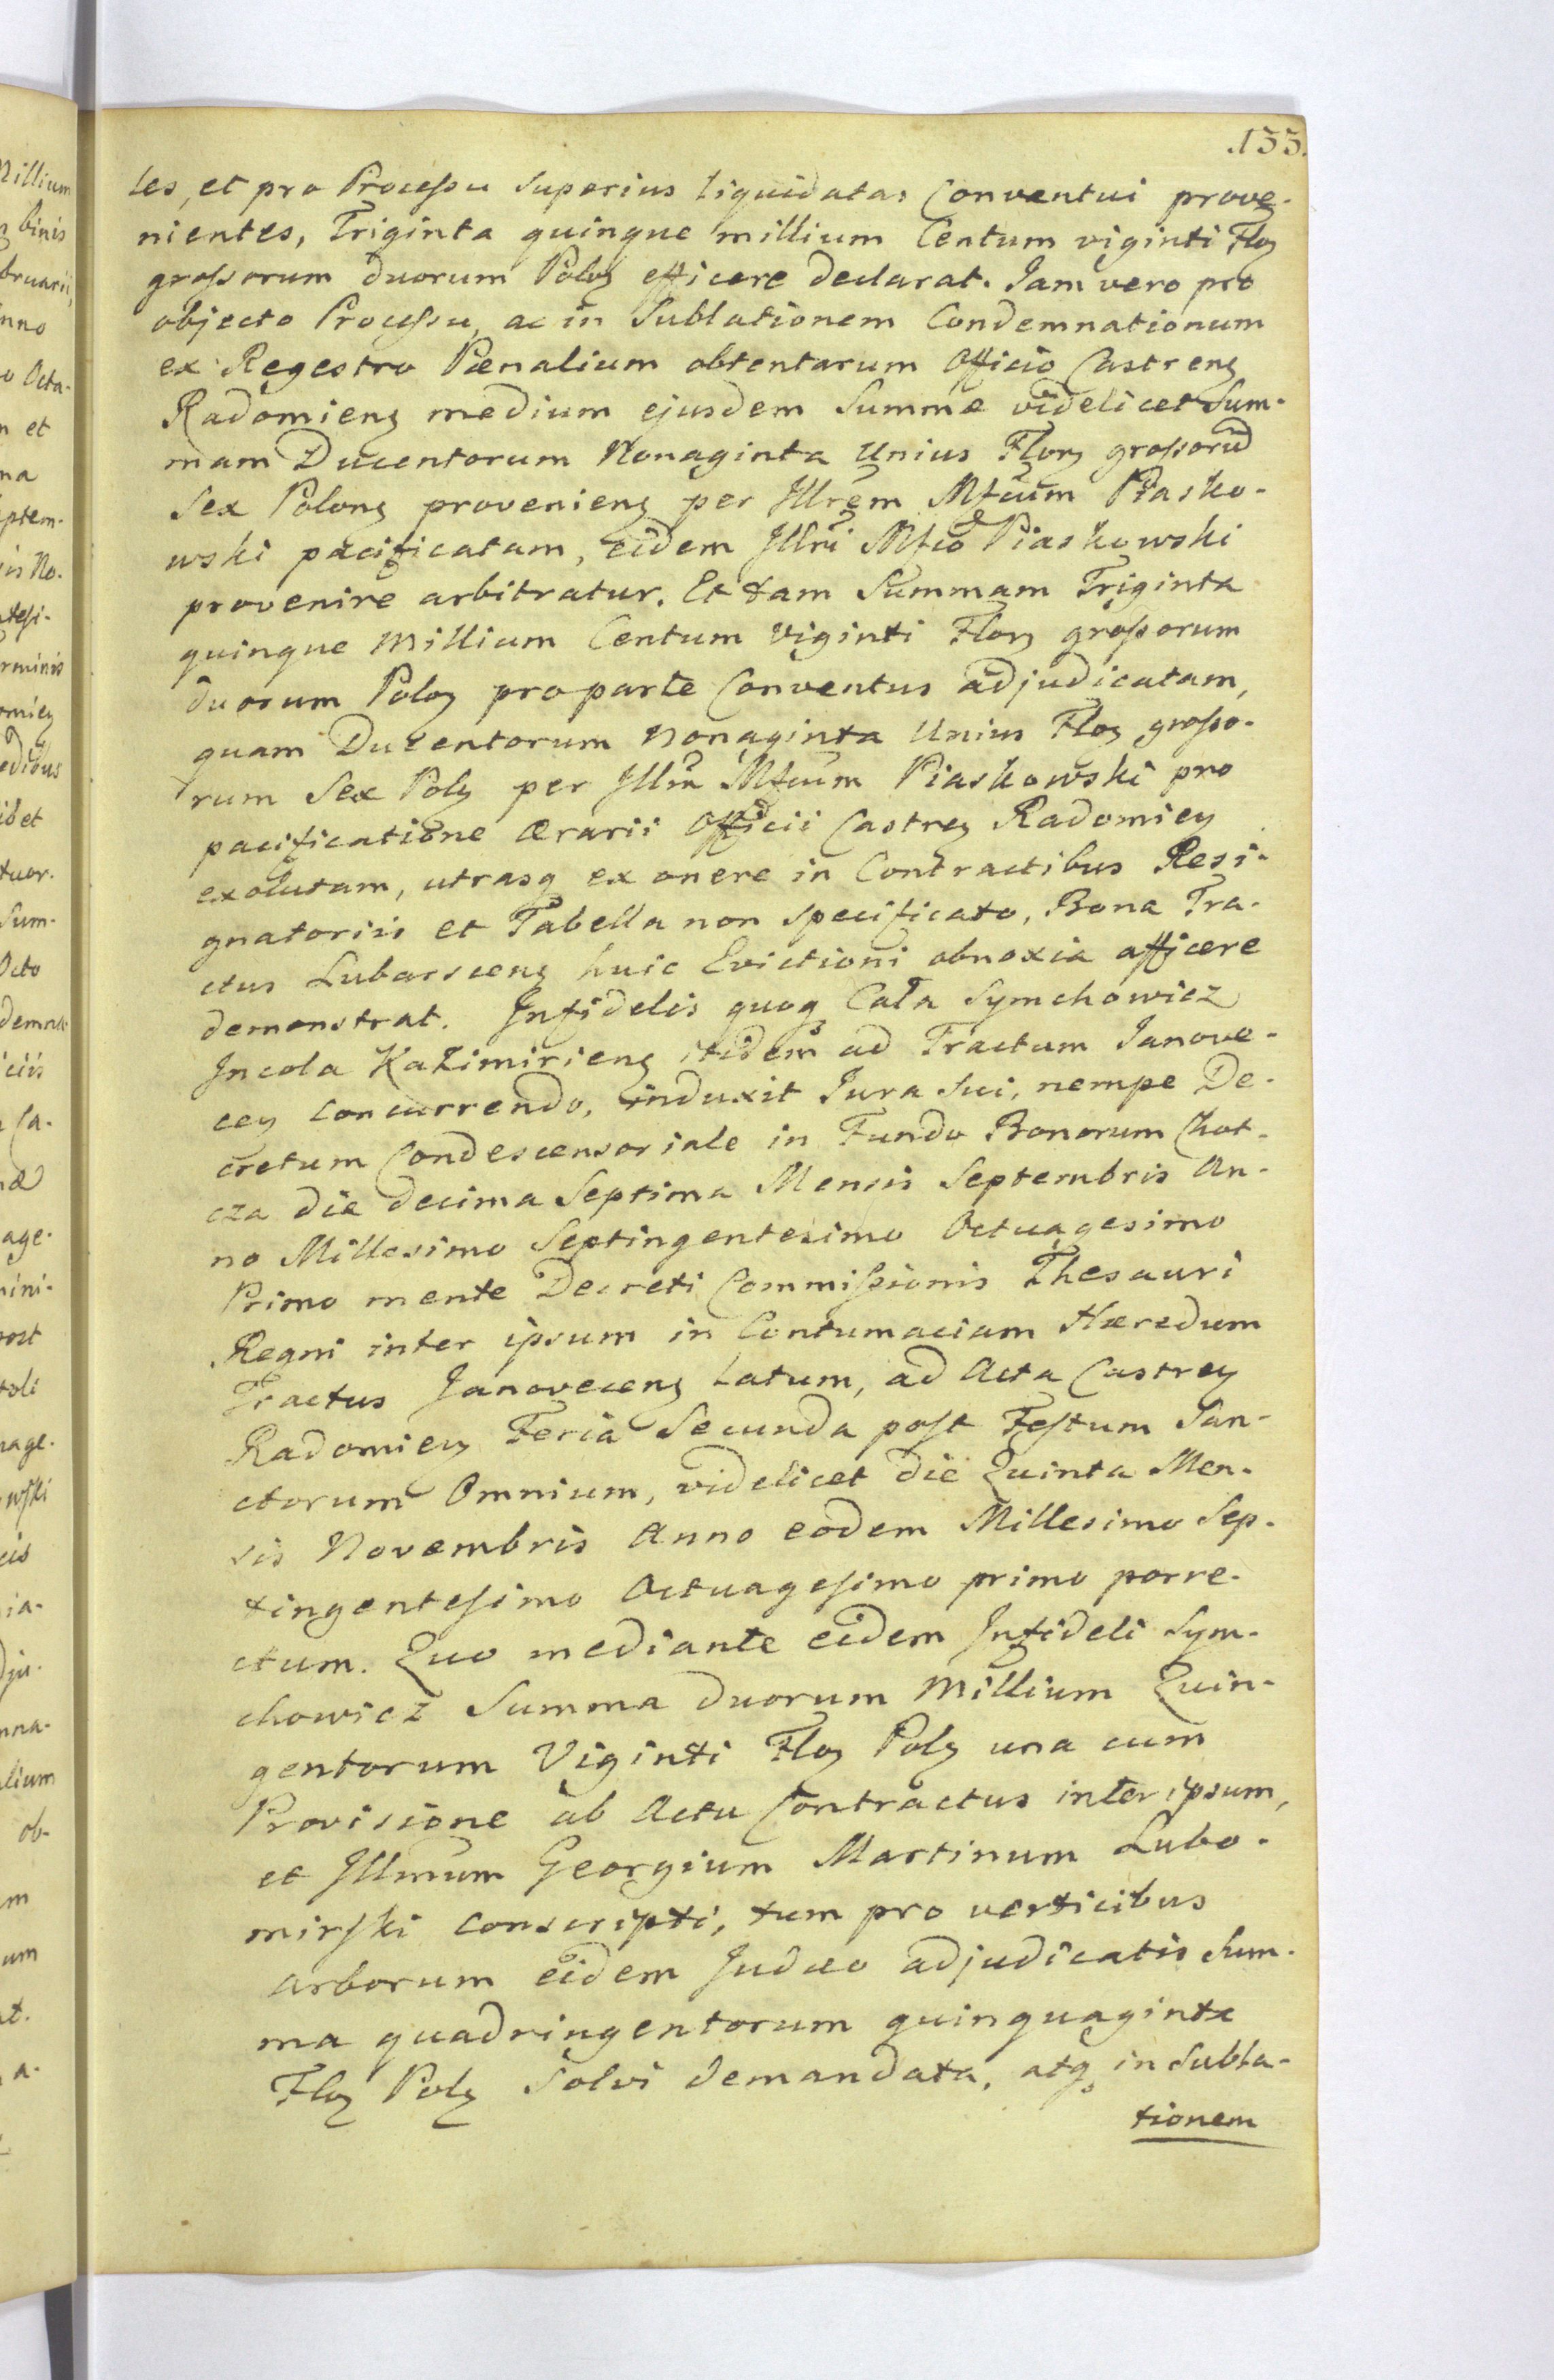 .133.
les, et pro Processu superius liquidatas Conventui prove-
nientes, Triginta quinque millium Centum viginti Flor
grossorum duorum Polon efficere declarat. Iam vero pro
objecto Processu, ac in Sublationem Condemnationum
ex Regestro Pœnalium obtentarum Officio Castrens
Radomiens medium ejusdem Summæ videlicet Sum-
mam Ducentorum Nonaginta Unius Flor grossorũ
Sex Polon proveniens per Illrem Mfcum Piasko-
wski pacificatam, eidem Illri Mfco Piaskowski
provenire arbitratur. Et tam Summam Triginta
quinque Millium Centum Viginti Flor grossorum
duorum Polon pro parte Conventus adjudicatam,
quam Ducentorum Nonaginta Unius Flor grosso-
rum Sex Pol per Illm Mfcum Piaskowski pro
pacificatione ærarii Officii Castren Radomien
exolutam, utrasq ex onere in Contractibus Resi-
gnatoriis et Tabella non specificato, Bona Tra-
ctus Lubarscens huic Evictioni obnoxia afficere
demonstrat. Infidelis quoq Cała Symchowicz
Incola Kazimiriens itidem ad Tractum Janove-
cen concurrendo, induxit Jura Sui, nempe De-
cretum Condescensoriale in Fundo Bonorum Chot-
cza die decima Septima Mensis Septembris An-
no Millesimo Septingentesimo Octuagesimo
Primo mente Decreti Commissionis Thesauri
Regni inter ipsum in Contumaciam Hæredum
Tractus Janovecens latum, ad Acta Castren
Radomien Feria Secunda post Festum San-
ctorum Omnium, videlicet die Quinta Men-
sis Novembris Anno eodem Millesimo Sep-
tingentesimo Octuagesimo primo porre-
ctum. Quo mediante eidem Infideli Sym-
chowicz Summa duorum Millium Quin-
gentorum Viginti Flor Pol una cum
Provisione ab Actu Contractus inter ipsum,
et Illmum Georgium Martinum Lubo-
mirski conscripti, tum pro verticibus
arborum eidem Judæo adjudicatis Sum-
ma quadringentorum quinquaginta
Flor Pol Solvi demandata, atq in Subla-
tionem